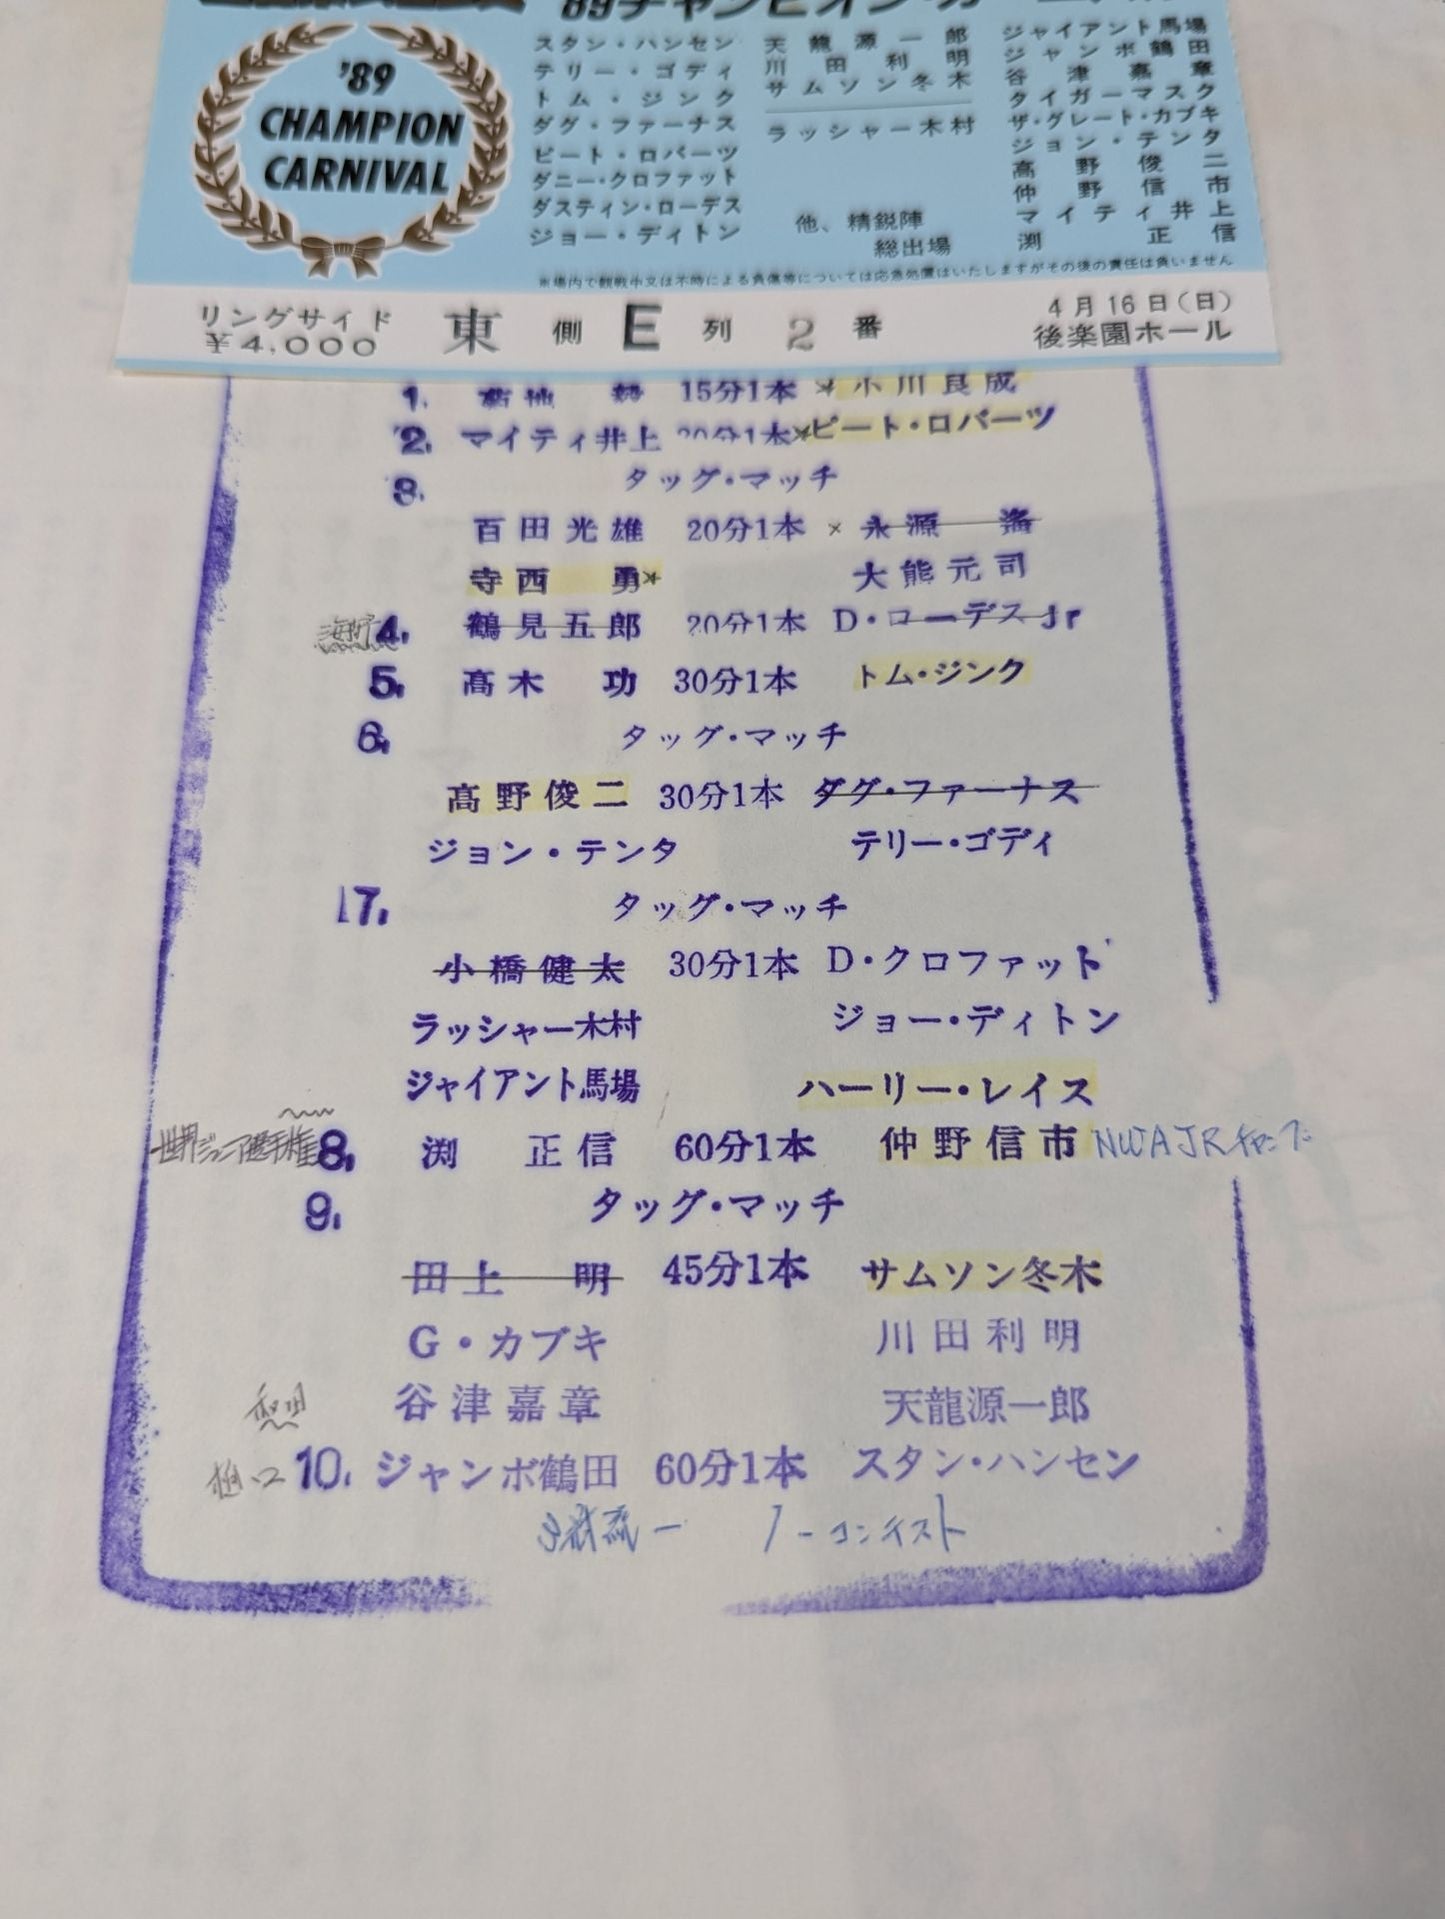 '89チャンピオン・カー
'89
CHAMPION
CARNIVAL
スタン・ハンセン
テリー・ゴディ
トム・ジンク
ダグ・ファーナス
ピート・ロバーツ
ダニー・クロファット
ダスティン・ローデス
ジョー・ディトン
天龍源一郎
川田利明
サムソン冬木
ラッシャー木村
他、精鋭陣
総出場
ジャイアント馬場
ジャンボ鶴田
谷津嘉章
タイガーマスク
ザ・グレート・カブキ
ジョン・テンタ
高野俊二
仲野信市
マイティ井上
渕正信
※場内で観戦中又は不時による負傷等については応急処置はいたしますがその後の責任は負いません
リングサイド
¥4,000
東側E列2番
4月16日(日)
後楽園ホール
1. 菊地毅 15分1本 × 小川良成
2. マイティ井上 20分1本 ×ピート・ロバーツ
3. タッグ・マッチ
百田光雄 20分1本 × 永源遙
寺西勇× 大熊元司
4. 鶴見五郎 20分1本 D・ローデスJr
5. 高木功 30分1本 トム・ジンク
6. タッグ・マッチ
高野俊二 30分1本 ダグ・ファーナス
ジョン・テンタ テリー・ゴディ
7. タッグ・マッチ
小橋健太 30分1本 D・クロファット
ラッシャー木村 ジョー・ディトン
ジャイアント馬場 ハーリー・レイス
世界ジュニア選手権 8. 渕正信 60分1本 仲野信市 NWA JR
9. タッグ・マッチ
田上明 45分1本 サムソン冬木
G・カブキ 川田利明
谷津嘉章 天龍源一郎
和田
樋口 10. ジャンボ鶴田 60分1本 スタン・ハンセン
ノーコンテスト